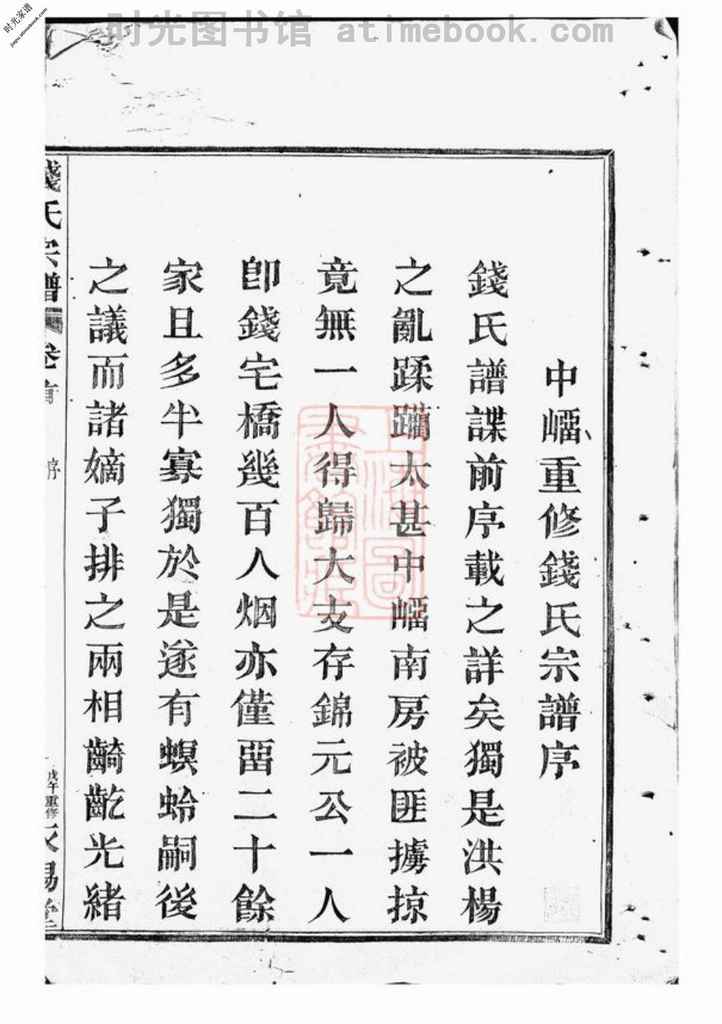 时光图书馆 atimebook.com
时光家谱
jiapu.atimebook.com
中嵧重修錢氏宗譜序
錢氏譜諜前序載之詳矣獨是洪楊
之亂蹂躪太甚中嵧南房被匪擄掠
竟無一人得歸大支存錦元公一人
卽錢宅橋幾百人烟亦僅畱二十餘
家且多半寡獨於是遂有螟蛉嗣後
之議而諸嫡子排之兩相齮齕光緒
錢氏宗譜 卷首 序 戊午重修